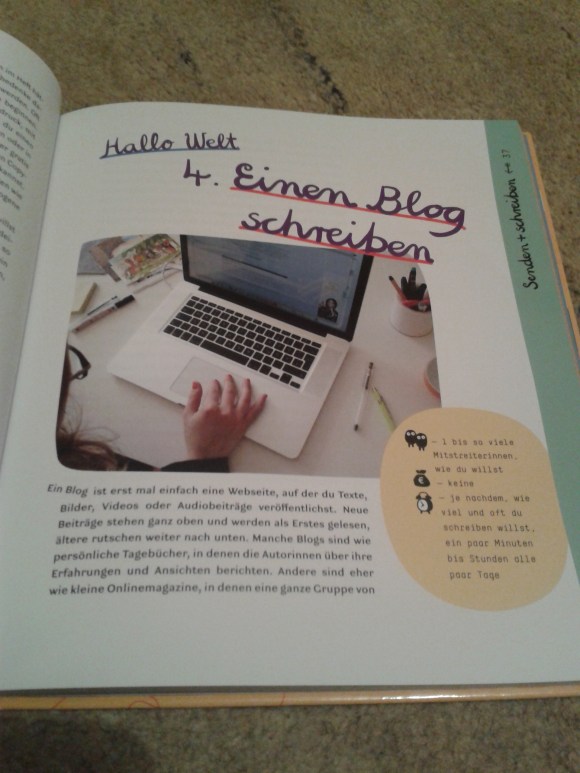 Hallo Welt
4. Einen Blog
schreiben
Senden + schreiben ++ 37
– 1 bis so viele
Mitstreiterinnen,
wie du willst
– keine
– je nachdem, wie
viel und oft du
schreiben willst,
ein paar Minuten
bis Stunden alle
paar Tage
Ein Blog ist erst mal einfach eine Webseite, auf der du Texte,
Bilder, Videos oder Audiobeiträge veröffentlichst. Neue
Beiträge stehen ganz oben und werden als Erstes gelesen,
ältere rutschen weiter nach unten. Manche Blogs sind wie
persönliche Tagebücher, in denen die Autorinnen über ihre
Erfahrungen und Ansichten berichten. Andere sind eher
wie kleine Onlinemagazine, in denen eine ganze Gruppe von